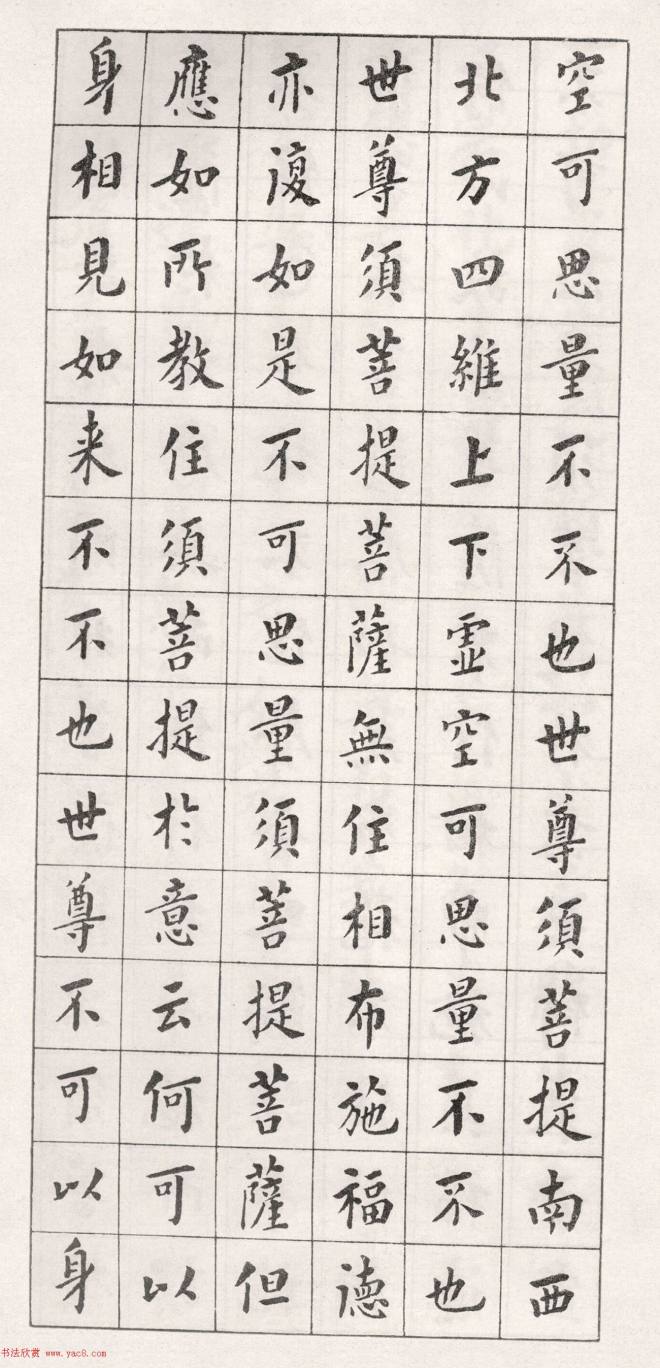 空可思量不不也世尊須菩提南西
北方四維上下虛空可思量不不也
世尊須菩提菩薩無住相布施福德
亦復如是不可思量須菩提菩薩但
應如所教住須菩提於意云何可以
身相見如来不不也世尊不可以身
书法欣赏 www.yac8.com